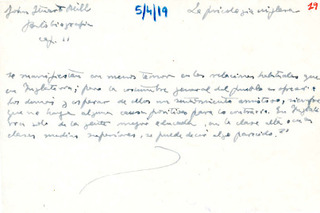 John Stuart Mill 5/4/19 La psicología inglesa 19
Autobiografía
cap. II
se manifiestan con menos temor en las relaciones habituales que
en Inglaterra; pero la costumbre general del pueblo es apreciar a
los demás y esperar de ellos un sentimiento amistoso, siempre
que no haya alguna causa positiva para lo contrario. En Inglate-
rra sólo de la gente mejor educada, en la clase alta o en las
clases medias superiores, se puede decir algo parecido."